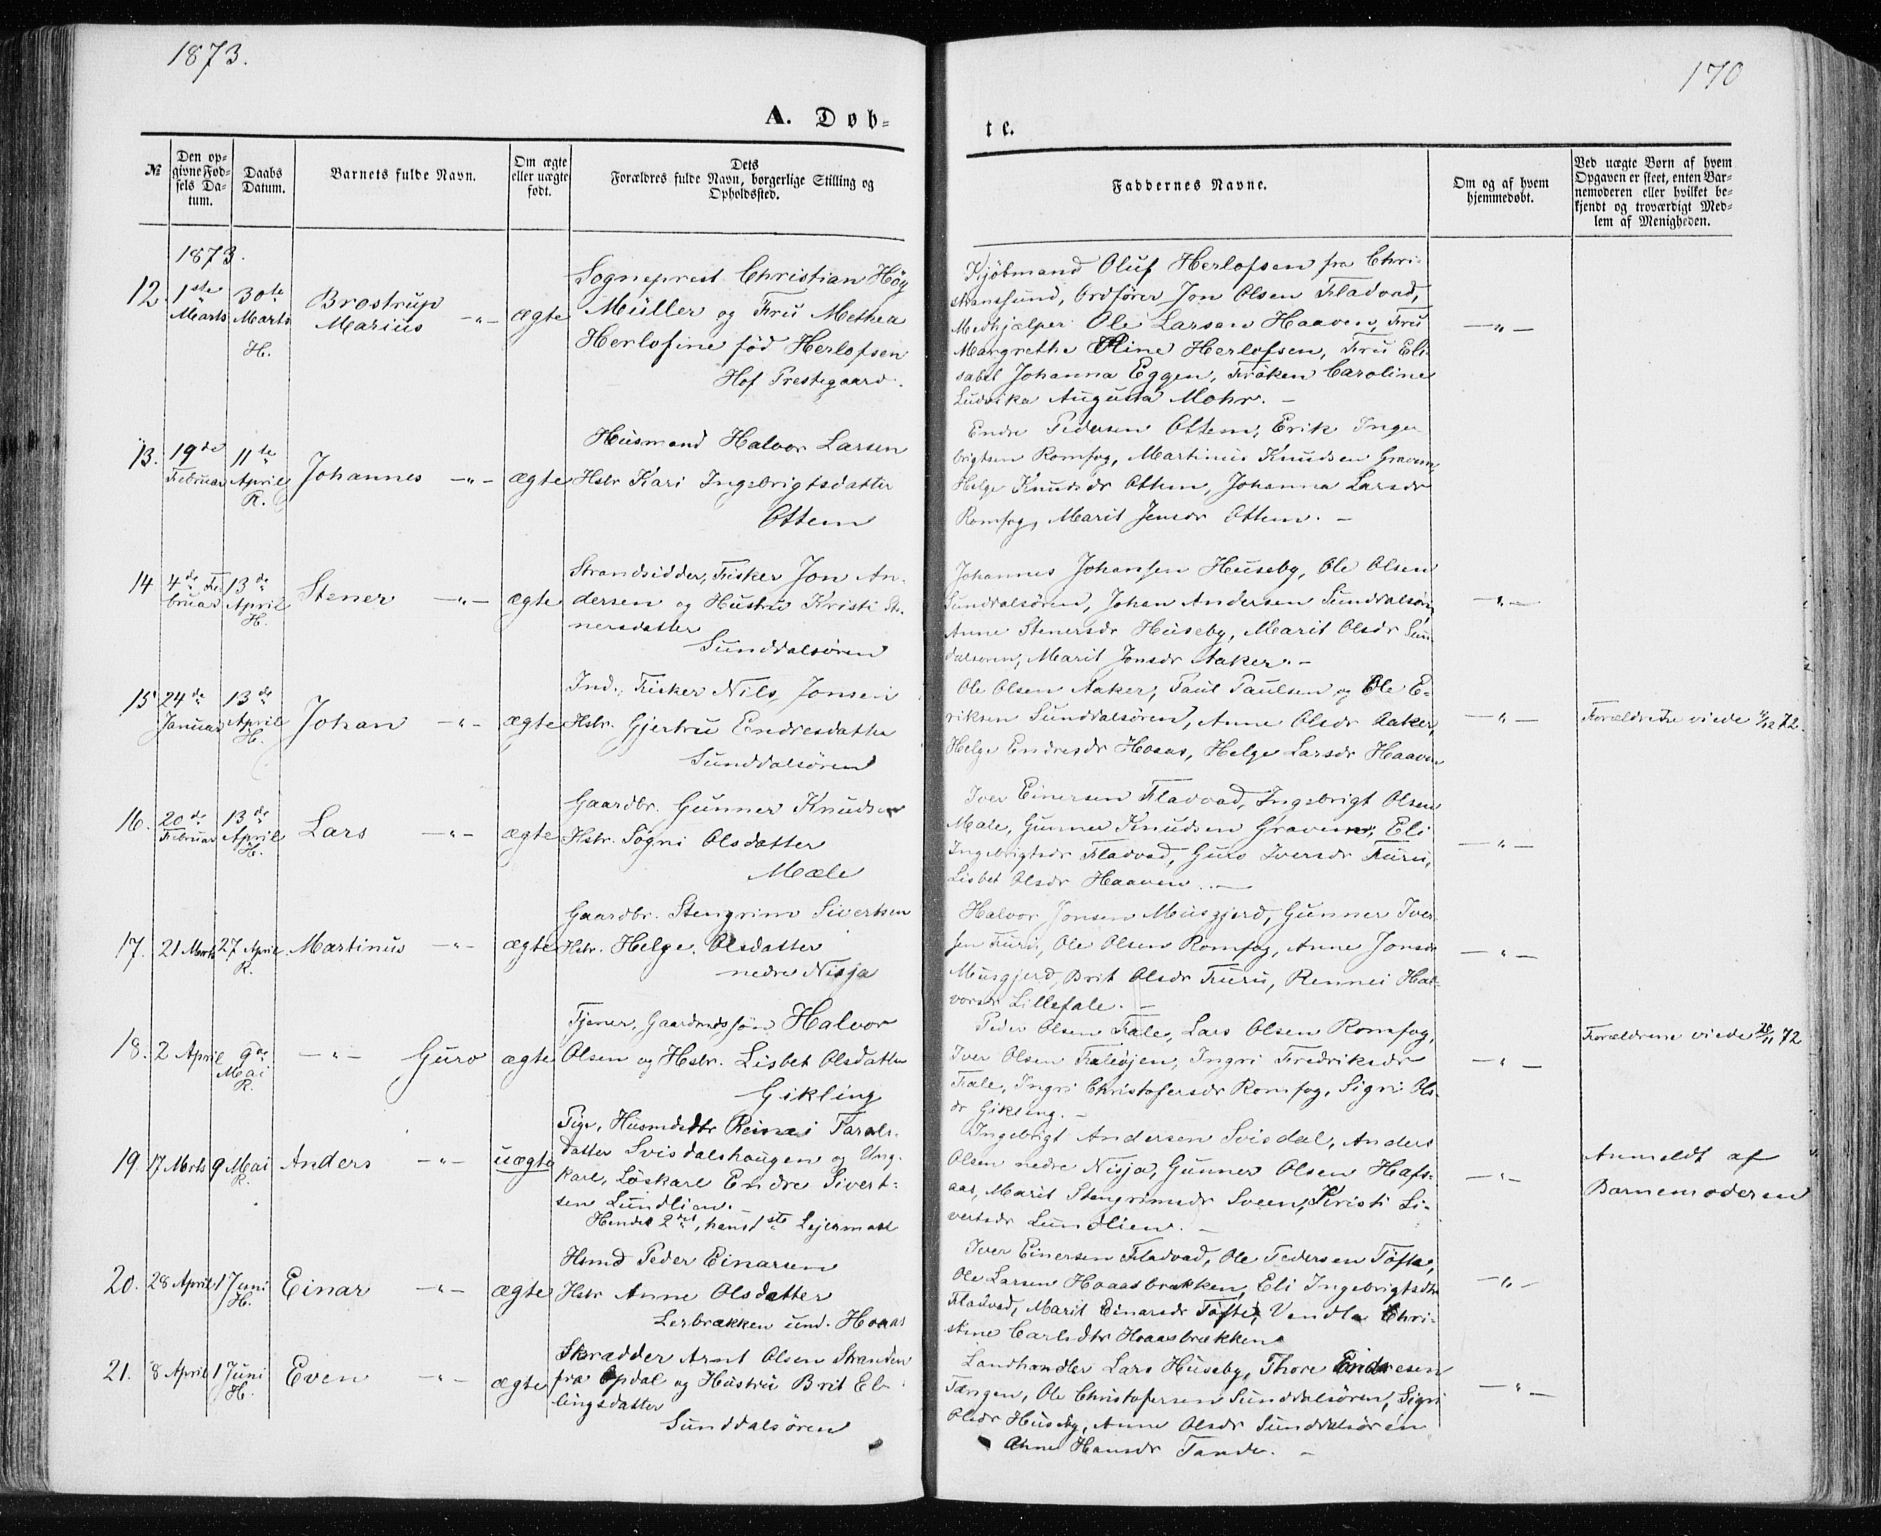 1873.
170
A. Døb-
te.
№
Den op-
givne Fød-
sels Da-
tum.
Daabs
Datum.
Barnets fulde Navn.
Om ægte
eller uægte
født.
Dets
Forældres fulde Navn, borgerlige Stilling og
Opholdssted.
Faddernes Navne.
Om og af hvem
hjemmedøbt.
Ved uægte Børn af hvem
Opgaven er skeet, enten Bar-
nemoderen eller hvilket be-
kjendt og troværdigt Med-
lem af Menigheden.
1873.
12
1ste
Marts
30te
Marts
H.
Brostrup
Marius
-"-
ægte
Sogneprest Christian Hög
Müller og Fru Methea
Herlofine född Herlofsen
Hof Prestegaard.
Kjöbmand Oluf Herlofsen fra Chri-
stianssund, Ordförer Jon Olsen Fladvad,
Medhjælper Ole Larsen Haaven, Fru
Margrethe Oline Herlofsen, Fru Eli-
sabet Johanna Eggen, Fröken Caroline
Ludvika Augusta Mohr. -
-"-
13.
19de
Februar
11te
April
R.
Johannes
-"-
ægte
Husmand Halvor Larsen
Hstr Kari Ingebrigtsdatter
Ottem
Endre Pedersen Ottem, Erik Inge-
brigtsen Romfog, Martinus Knudsen Gravem,
Helge Knudsdr Ottem, Johanna Larsdr
Romfog, Marit Jensdr Ottem. -
14
4de Fe-
bruar
13de
April
H.
Stener
-"-
ægte
Strandsidder, Fisker Jon An-
dersen og Hustru Kristi Ste-
nersdatter
Sunddalsören
Johannes Johansen Huseby, Ole Olsen
Sunddalsören, Johan Andersen Sunddalsören,
Anne Stenersdr Huseby, Marit Olsdr Sun-
dalsören, Marit Jonsdr Aaker. -
-"-
15
24de
Januar
13de
April
H.
Johan
-"-
ægte
Ind., Fisker Nils Jonsen
Hstr. Gjertru Endresdatter
Sunddalsören
Ole Olsen Aaker, Paul Paulsen og Ole E-
riksen Sunddalsören, Anne Olsdr Aaker,
Helge Endresdr Hoaas, Helge Larsdr Haaven
-"-
Forældrene viede 72.
16.
20de
Februar
13de
April
H.
Lars
-"-
ægte
Gaardbr. Gunner Knudsen
Hstr. Sogni Olsdatter
Mæle
Iver Einersen Fladvad, Ingebrigt Olsen
Mæle, Gunner Knudsen Gravem, Eli
Ingebrigtsdr Fladvad, Guro Iversdr Furu,
Lisbet Olsdr Haaven. -
-"-
17.
21 Marts
27 April
R.
Martinus
-"-
ægte
Gaardbr. Stengrim Sivertsen
Hstr. Helge Olsdatter
nedre Nisja
Halvor Jonsen Musgjerd, Gunner Iver-
sen Furu, Ole Olsen Romfog, Anne Jonsdr
Musgjerd, Brit Olsdr Furu, Rennei Hal-
vorsdr Lillefale. -
-"-
18.
2 April
9de
Mai
R.
-"-
Guro
ægte
Tjener, Gaardmdssön Halvor
Olsen og Hstr. Lisbet Olsdatter
Gikling
Peder Olsen Fale, Lars Olsen Romfog,
Iver Olsen Faleöjen, Ingri Fredriksdr
Fale, Ingri Christofersdr Romfog, Sigri Ols-
dr Gikling. -
-"-
Forældrene viede 28/11 72
19.
17 Mrts
9 Mai
R.
Anders
-"-
uægte
Pige, Husmdsdtr Tarals-
datter Svisdalshaugen og Ung-
karl, Löskarl Endre Sivert-
sen Lundlien. -
Hendes 2det, hans 1ste Lejermaal
Ingebrigt Andersen Svisdal, Anders
Olsen nedre Nisja, Gunner Olsen Hafs-
aas, Marit Stengrimsdr Sveen, Kristi Si-
vertsdr Lundlien. -
-"-
Anmeldt af
Barnemoderen
20.
28 April
1 Juni
H.
Einar
-"-
ægte
Hsmd Peder Einarsen
Hstr Anne Olsdatter
Lerbrækken und. Hoaas
Iver Einersen Fladvad, Ole Pedersen Töfte,
Ole Larsen Hoaasbrækken, Eli Ingebrigtsdtr
Fladvad, Marit Einarsdr Töfte, Vendla Chri-
stine Carlsdtr Hoaasbrækken
-"-
21.
8 April
1 Juni
H.
Even
-"-
ægte
Skrædder Arnt Olsen Stranden
fra Opdal og Hustru Brit El-
lingsdatter
Sunddalsören
Landhandler Lars Huseby, Thore Endresen
Tangen, Ole Christofersen Sunddalsören, Sigri
Olsdr Huseby, Anne Olsdr Sunddalsören
Ahne Hansdr Tande. -
-"-